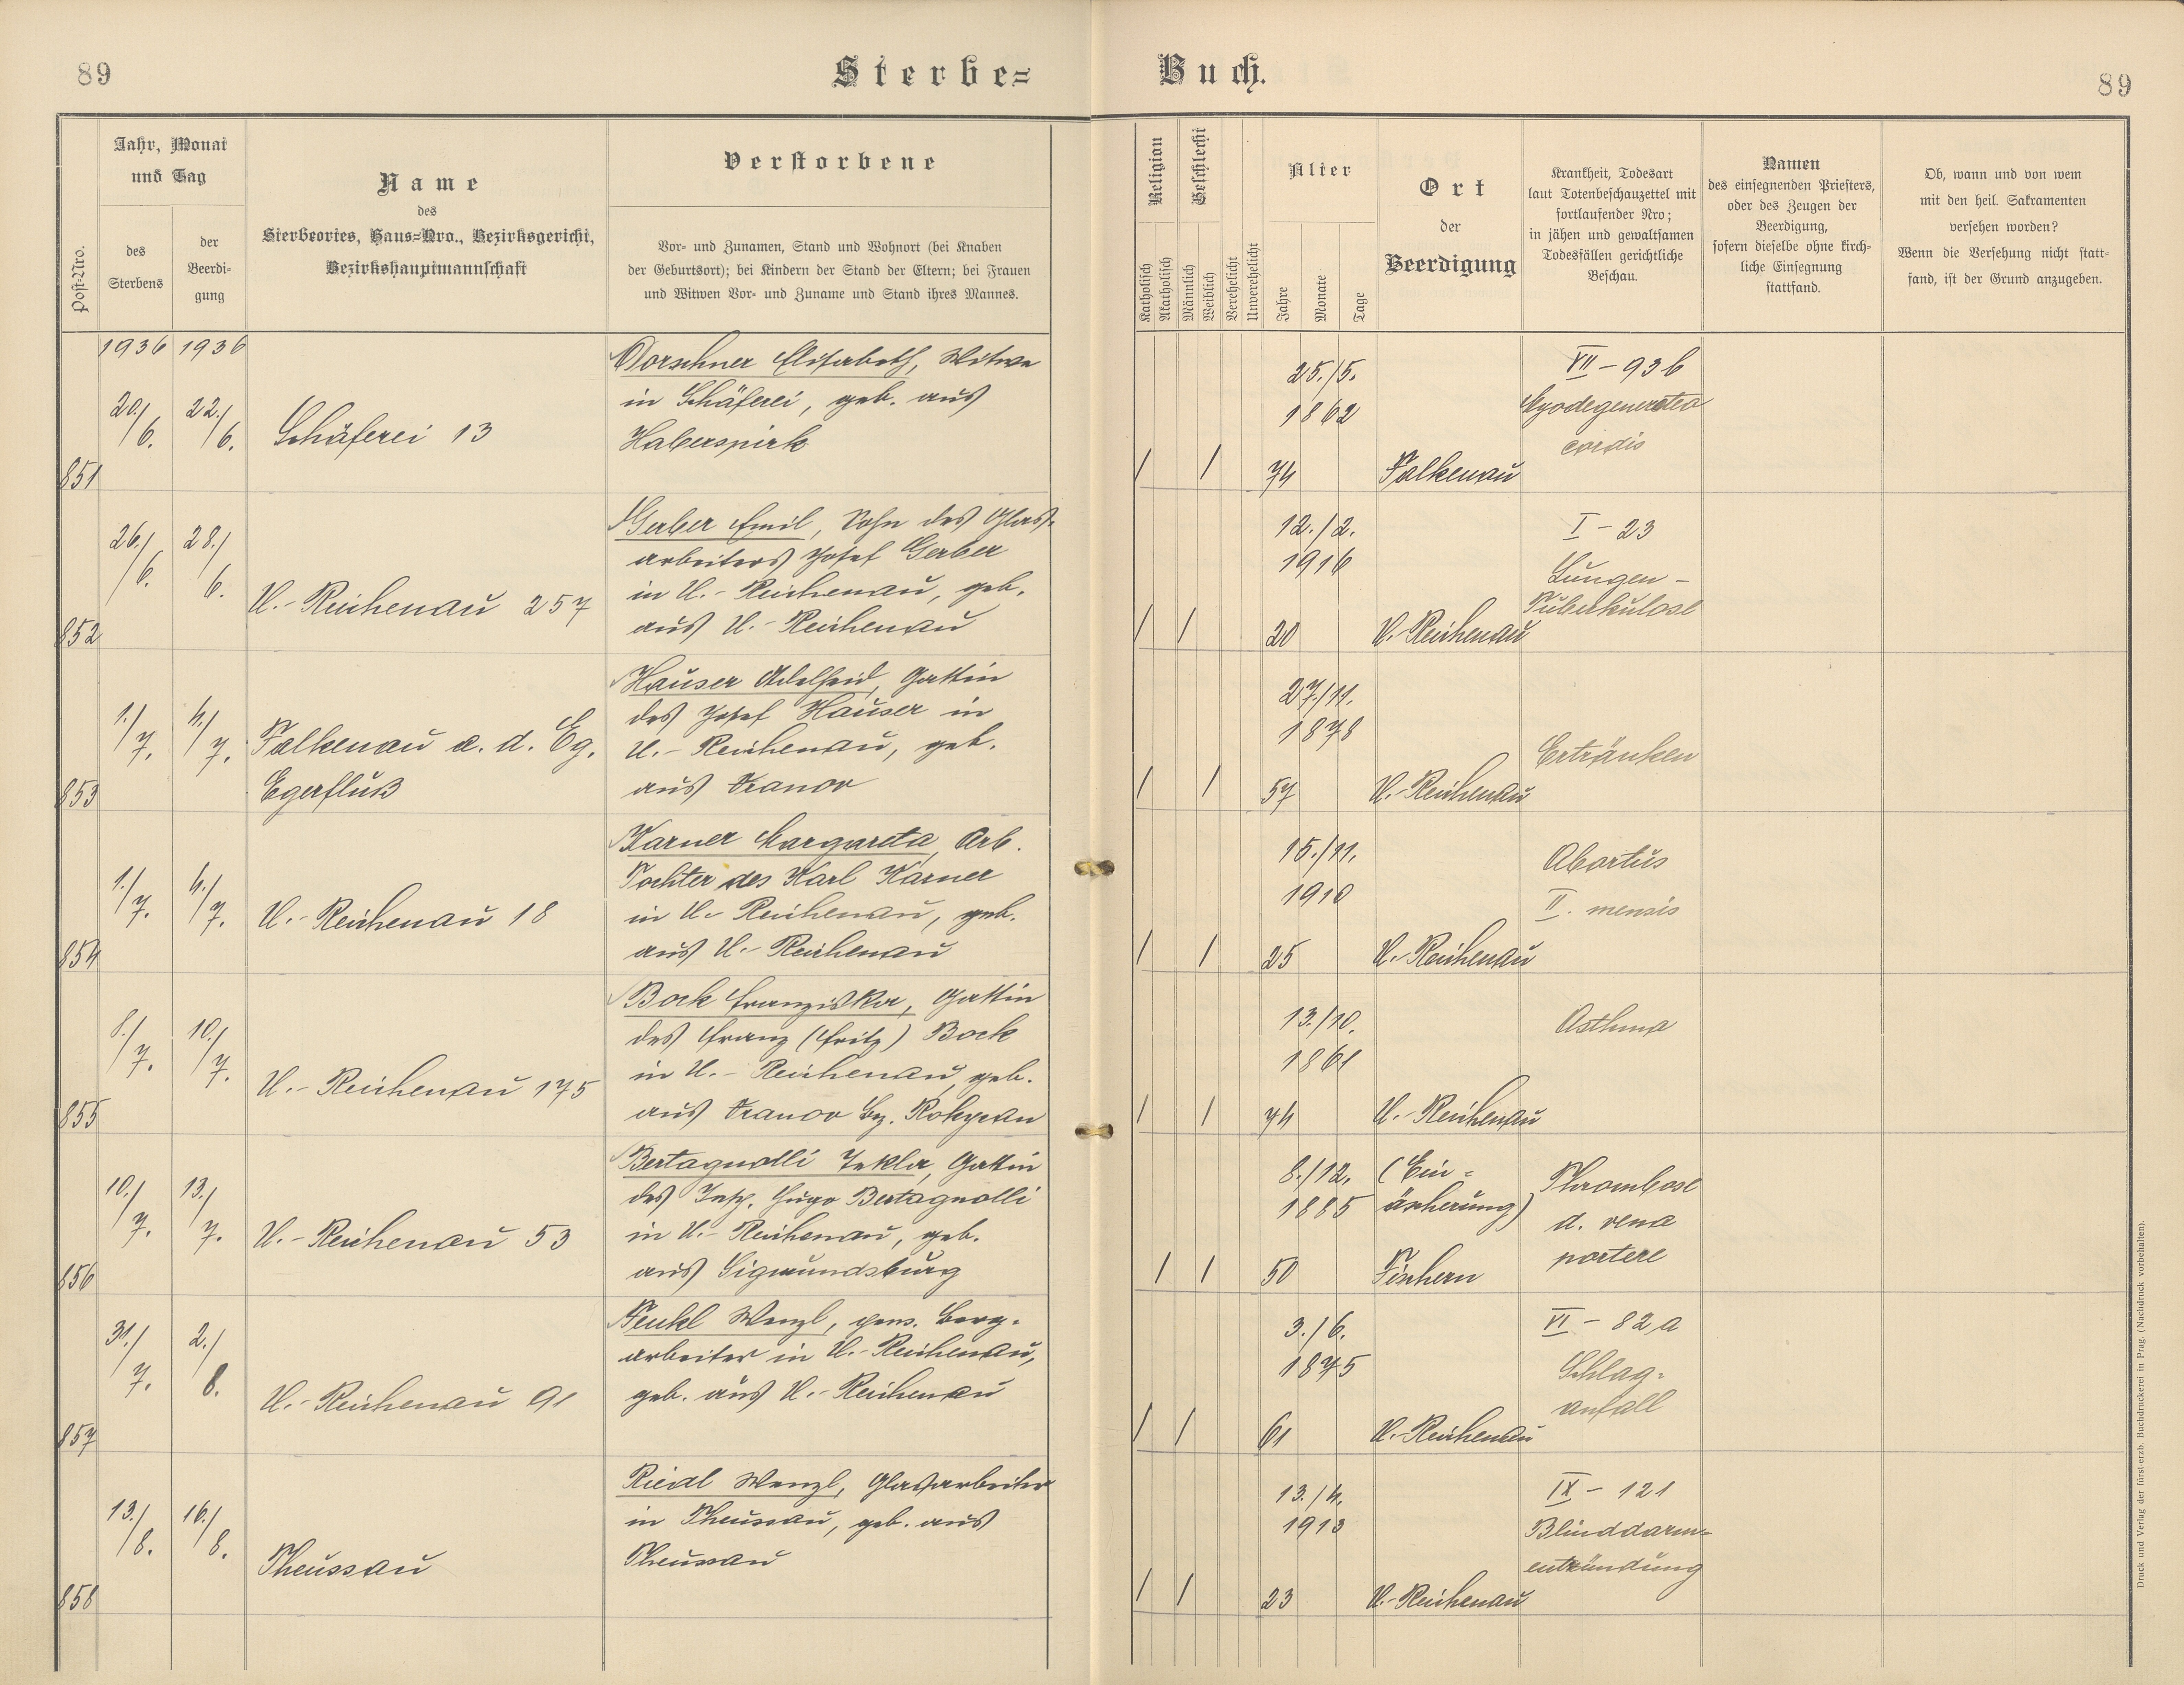 89
Sterbe=
Buch.
89
Post-Nro.
Jahr, Monat
und Tag
des
Sterbens
der
Beerdi-
gung
Name
des
Sterbeortes, Haus=Nro., Bezirksgericht,
Bezirkshauptmannschaft
Verstorbene
Vor- und Zunamen, Stand und Wohnort (bei Knaben
der Geburtsort); bei Kindern der Stand der Eltern; bei Frauen
und Witwen Vor- und Zuname und Stand ihres Mannes.
Religion
Katholisch
Akatholisch
Geschlecht
Männlich
Weiblich
Verehelicht
Unverehelicht
Alter
Jahre
Monate
Tage
Ort
der
Beerdigung
Krankheit, Todesart
laut Totenbeschauzettel mit
fortlaufender Nro;
in jähen und gewaltsamen
Todesfällen gerichtliche
Beschau.
Namen
des einsegnenden Priesters,
oder des Zeugen der
Beerdigung,
sofern dieselbe ohne kirch-
liche Einsegnung
stattfand.
Ob, wann und von wem
mit den heil. Sakramenten
versehen worden?
Wenn die Versehung nicht statt-
fand, ist der Grund anzugeben.
1936 1936
851
20./6. 22./6.
Schäferei 13
Dorschner Elisabeth, Witwe
in Schäferei, geb. aus
Haberspirk
/ /
25./5.
1862
74
Falkenau
VII - 93 b
Myodegeneratio
cordis
852
26./6. 28./6.
U.- Reichenau 257
Gerber Emil, Sohn des Glas-
arbeiters Josef Gerber
in U.- Reichenau, geb.
aus U.- Reichenau
/ /
12./2.
1916
20
U. Reichenau
I - 23
Lungen -
Tuberkulose
853
1./7. 4./7.
Falkenau a. d. Eg.
Egerfluß
Hauser Adelheid, Gattin
des Josef Hauser in
U.- Reichenau, geb.
aus Vranov
/ /
27./11.
1878
57
U.- Reichenau
Ertränken
854
1./7. 4./7.
U.- Reichenau 18
Karner Margareta, Arb.
Tochter des Karl Karner
in U.- Reichenau, geb.
aus U.- Reichenau
/ /
15./11.
1910
25
U.- Reichenau
Abortus
II. mensis
855
8./7. 10./7.
U.- Reichenau 175
Bock Franziska, Gattin
des Franz (Fritz) Bock
in U.- Reichenau, geb.
aus Vranov Bz. Rokycan
/ /
13./10.
1861
74
U.- Reichenau
Asthma
856
10./7. 13./7.
U.- Reichenau 53
Bertagnolli Tekla, Gattin
des Insp. Hugo Bertagnolli
in U.- Reichenau, geb.
aus Sigmundsburg
/ /
8./12.
1885
50
(Ein =
äscherung)
Fischern
Thrombose
d. vena
portere
857
31./7. 2./8.
U.- Reichenau 91
Fenkl Wenzl, pens. Berg-
arbeiter in U.- Reichenau,
geb. aus U.- Reichenau
/ /
3./6.
1875
61
U.- Reichenau
VI - 82 a
Schlag-
anfall
858
13./8. 16./8.
Theussau
Riedl Wenzl, Glasarbeiter
in Theussau, geb. aus
Theussau
/ /
13./4.
1913
23
U.- Reichenau
IX - 121
Blinddarm-
entzündung
Druck und Verlag der fürst-erzb. Buchdruckerei in Prag. (Nachdruck vorbehalten).